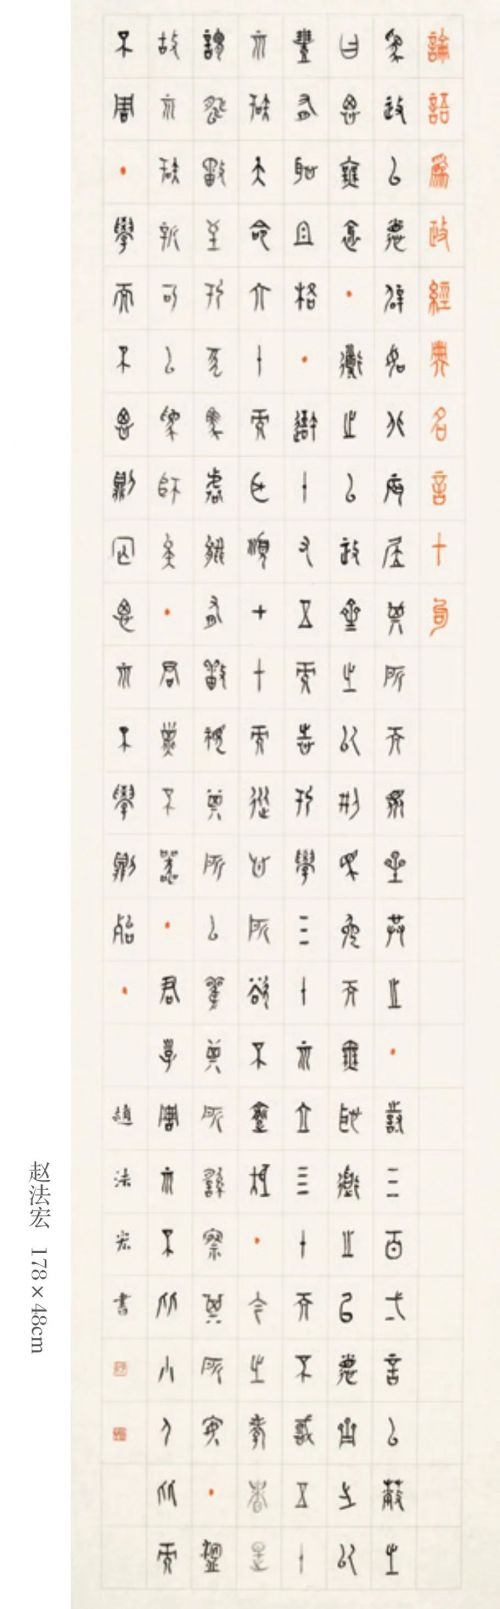 論語為政經典名言十句
為政以德辟如北辰居其所而眾星共之·詩三百一言以蔽之
曰思無邪·道之以政齊之以刑民免而無恥道之以德齊之以
禮有恥且格·吾十有五而志于學三十而立四十而不惑五十
而知天命六十而耳順七十而從心所欲不踰矩·今之孝者是
謂能養至于犬馬皆能有養視其所以觀其所由察其所安·溫
故而知新可以為師矣·君子不器·君子周而不比小人比而
不周·學而不思則罔思而不學則殆·
趙法宏書
赵法宏 178×48cm